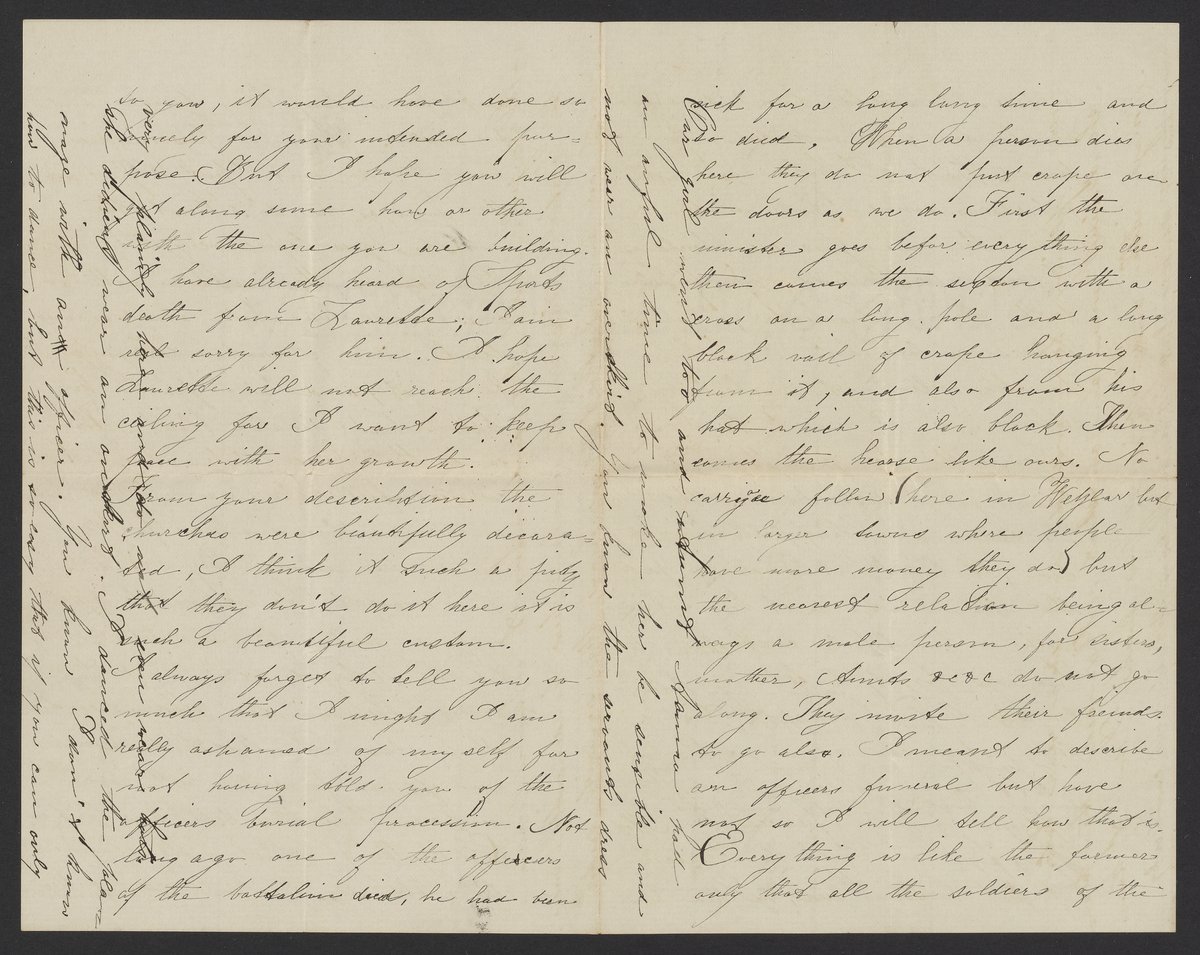 to you, it would have done so
nicely for your intended pur=
pose. But I hope you will
get along some how or other
with the one you are building.
I have already heard of Sports
death from Laurette; I am
real sorry for him. I hope
Laurette will not reach the
ceiling for I want to keep
pace with her growth.
From your description the
churches were beautifully decora=
ted, I think it such a pity
that they don't do it here it is
such a beautiful custom.
I always forget to tell you so
much that I might I am
really ashamed of my self for
not having told you of the
officers burial procession. Not
long ago one of the officers
of the battalion died, he had been
sick for a long long time and
so died. When a person dies
here they do not put crape over
the doors as we do. First the
minister goes befor every thing else
then comes the sexton with a
cross on a long pole and a long
black vail of crape hanging
from it, and also from his
hat which is also black. Then
comes the hearse like ours. No
carriges follow (here in Wetzlar but
in larger towns where people
have more money they do) but
the nearest relation being al=
ways a male person, for sisters,
mother, Aunts &c &c do not go
along. They invite their freinds
to go also. I meant to describe
an officers funeral but have
not so I will tell how that is.
Everything is like the former
only that all the soldiers of the
Our girl went too and Aunt Hanna had
an awful time to make her be sensible and
not wear an overskirt. You know the servants dress
very plainly here and do not even wear hats
she didn't wear an overskirt. I danced the polan=
aise with an officer. You know I don't know
how to dance, but this is so easy that if you can only